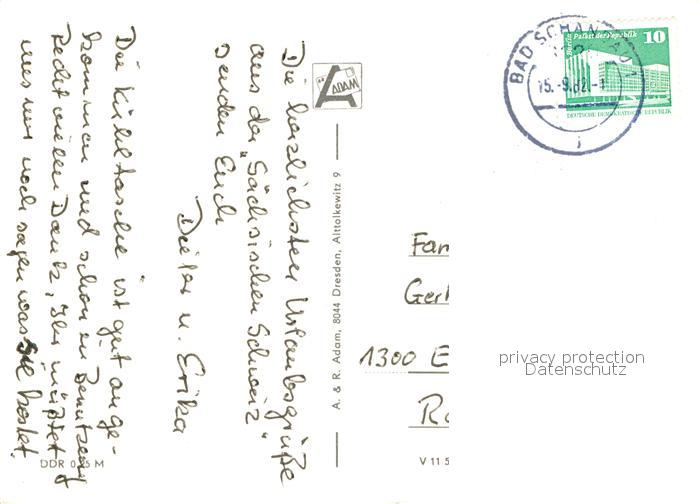 Die herzlichsten Urlaubsgrüße
aus der „Sächsischen Schweiz"
senden Euch
Dieter u. Erika
Die Kühltasche ist gut ange-
kommen und schon in Benutzung
Recht vielen Dank, Ihr müßtet
uns nur noch sagen was sie kostet.
DDR 0,25 M
ADAM
A. & R. Adam, 8044 Dresden, Alttolkewitz 9
V 11 5
BAD SCHANDAU 1
15.-9.82
j
Berlin Palast der Republik 10
DEUTSCHE DEMOKRATISCHE REPUBLIK
Fam
Gerh
1300 E
privacy protection
Datenschutz